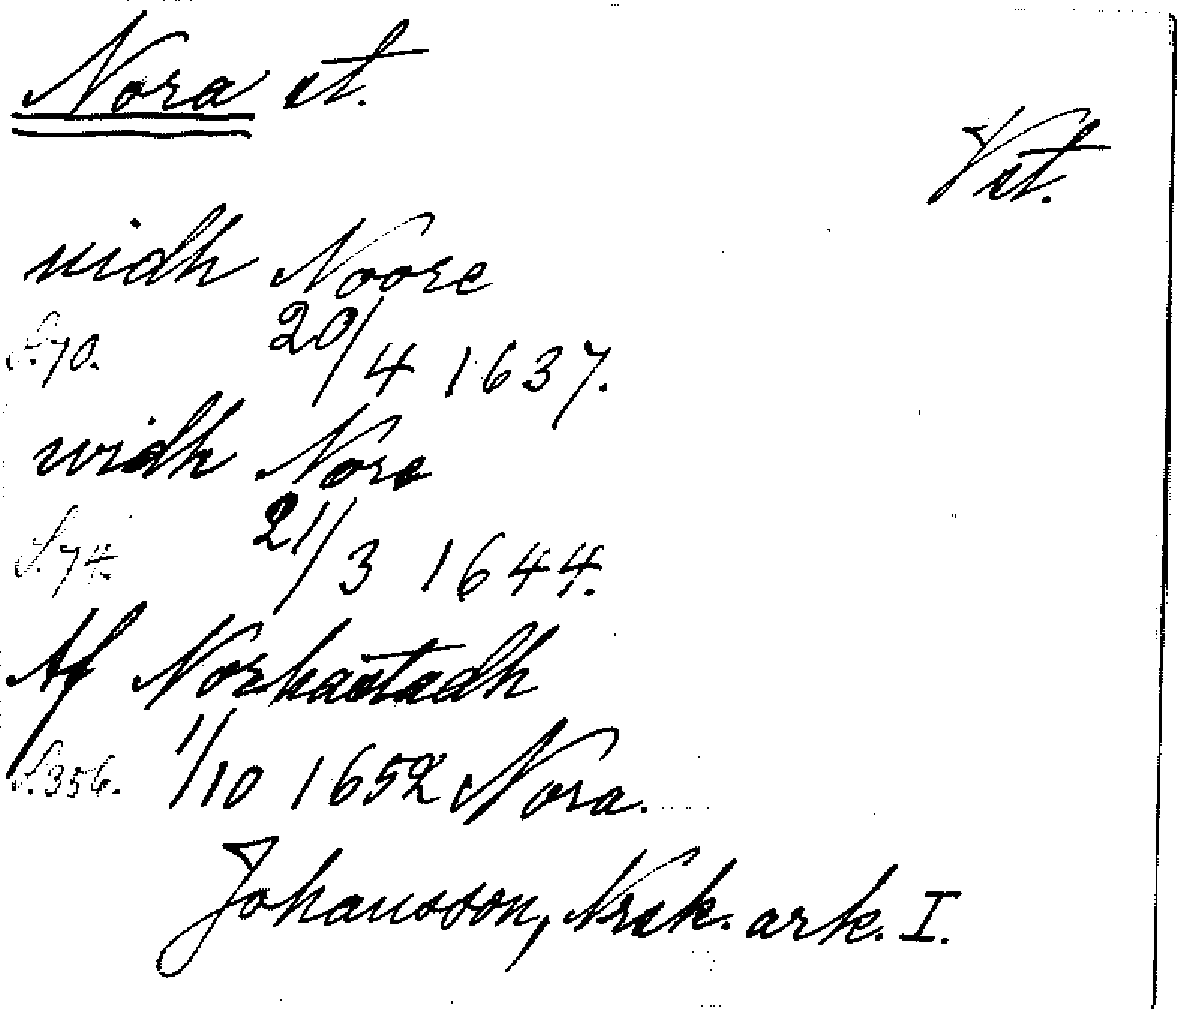 Nora st.
Vst.
vidh Noore
S. 70. 20/4 1637.
widh Nore
S. 74. 21/3 1644.
Af Norkastadh
S. 356. 1/10 1652 Nora.
Johansson, Nrsk. ark. I.